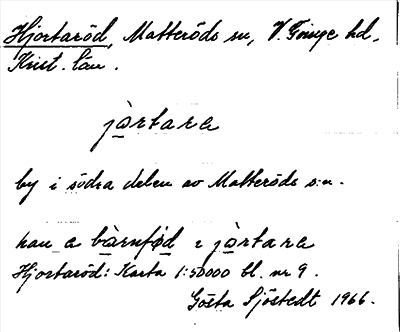 Hjortaröd, Matteröds sn, V. Göinge hd,
Krist. län.
jàrtara
by i södra delen av Matteröds s:n.
han a bàrnfød i jàrtara
Hjortaröd: Karta 1:50000 bl. nr 9.
Gösta Sjöstedt 1966.